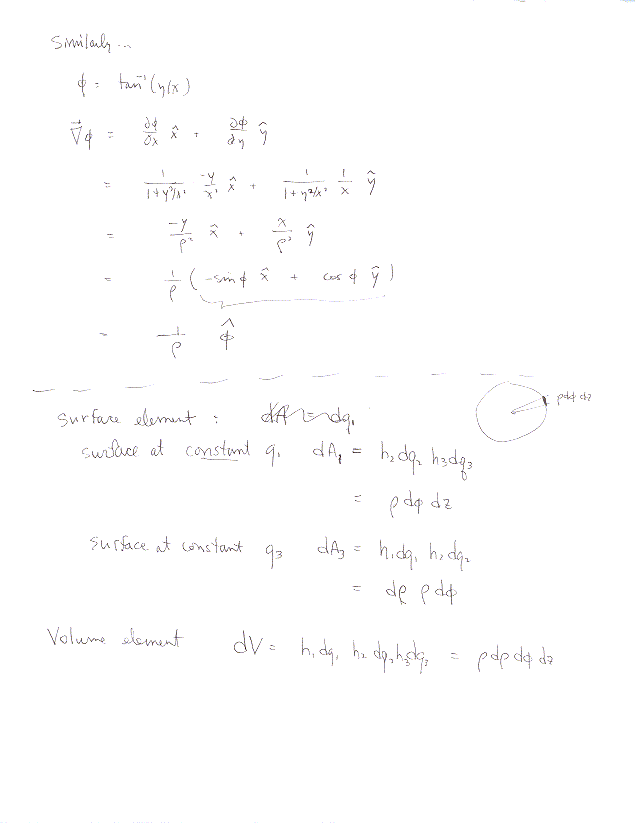 Similarly ...
ϕ = tan⁻¹(y/x)
∇⃗ϕ = ∂ϕ/∂x x̂ + ∂ϕ/∂y ŷ
= 1/(1+y²/x²) -y/x² x̂ + 1/(1+y²/x²) 1/x ŷ
= -y/ρ² x̂ + x/ρ² ŷ
= 1/ρ (-sinϕ x̂ + cosϕ ŷ)
= 1/ρ ϕ̂
Surface element : dA = dq₁
ρdϕ dz
surface at constant q₁ dA₁ = h₂dq₂ h₃dq₃
= ρdϕ dz
Surface at constant q₃ dA₃ = h₁dq₁ h₂dq₂
= dρ ρdϕ
Volume element dV = h₁dq₁ h₂dq₂h₃dq₃ = ρdρdϕdz